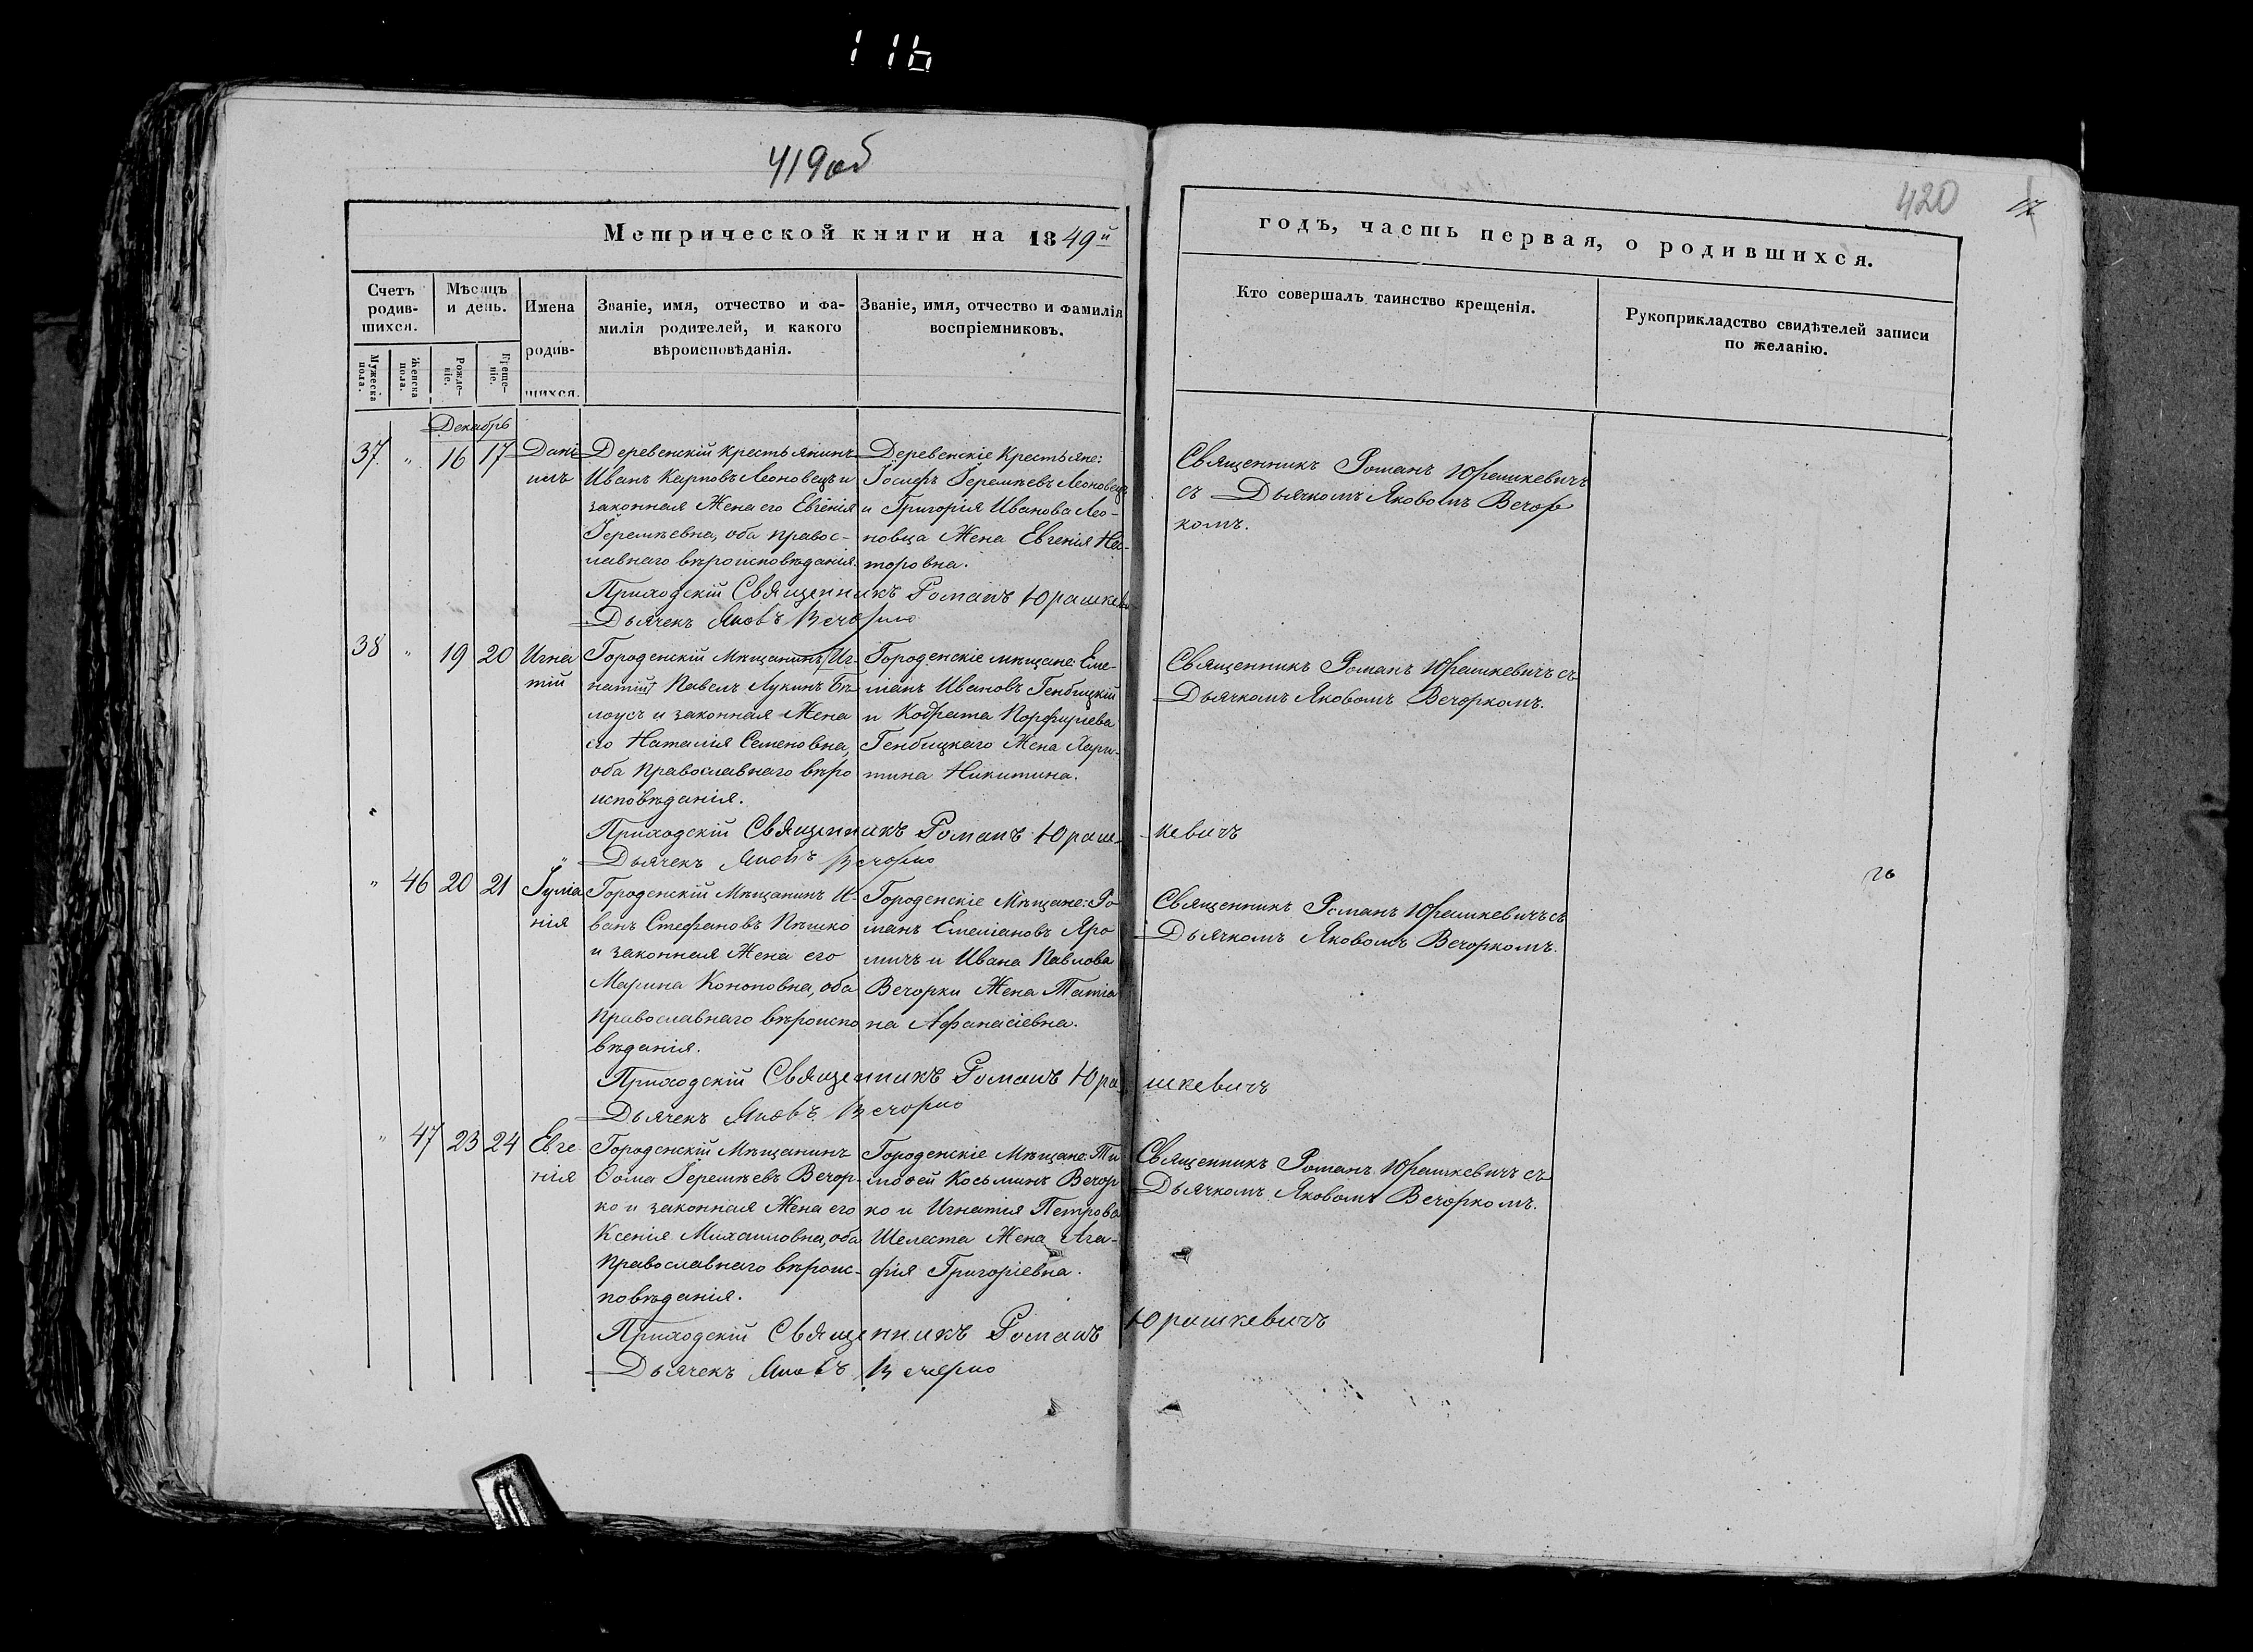 116
419 об
420
Метрической книги на 1849й
годъ, часть первая, о родившихся.
Счетъ родив-шихся.
Мѣсяцъ и день.
Имена родив-шихся.
Званіе, имя, отчество и фа-
милія родителей, и какого
вѣроисповѣданія.
Званіе, имя, отчество и фамилія
воспріемниковъ.
Кто совершалъ таинство крещенія.
Рукоприкладство свидѣтелей записи
по желанію.
Мужеска пола.
Женска пола.
Рожде-ніе.
Креще-ніе.
Декабрь
37 " 16 17
Дані
илъ
Деревенскій крестьянинъ
Иванъ Карповъ Леоновецъ и
законная Жена его Евгенія
Іеремѣевна, оба правос-
лавнаго вѣроисповѣданія.
Деревенскіе Крестьяне:
Іосифъ Іеремѣевъ Леоновецъ
и Григорія Иванова Лео-
новца Жена Евгенія Нес-
торовна.
Священникъ Романъ Юрашкевичъ
съ Дьячкомъ Яковомъ Вечор
комъ.
Приходскій Священникъ Романъ Юрашкеви
Дьячекъ Яковъ Вечорко
38 " 19 20
Игна
тій
Городенскій Мѣщанинъ Иг-
натій Павелъ Лукинъ Бѣ-
лоусъ и законная Жена
его Наталія Семеновна,
оба Православнаго вѣро
исповѣданія.
Городенскіе мѣщане: Еме-
ліанъ Ивановъ Генбицкій
и Кодрата Порфиріева
Генбицкаго Жена Хари-
тина Никитина.
Священникъ Романъ Юрашкевичъ съ
Дьячкомъ Яковомъ Вечоркомъ.
Приходскій Священникъ Романъ Юраш-кевичъ
Дьячекъ Яковъ Вечорко
" 46 20 21
Іуліа
нія
Городенскій Мѣщанинъ И-
ванъ Стефановъ Пѣшко
и законная Жена его
Марина Кононовна, оба
Православнаго вѣроиспо
вѣданія.
Городенскіе Мѣщане: Ро
манъ Емеліановъ Яро
мичъ и Ивана Павлова
Вечорки Жена Татіа
на Афанасіевна.
Священникъ Романъ Юрашкевичъ съ
Дьячкомъ Яковомъ Вечоркомъ.
Приходскій Священникъ Романъ Юрашкевичъ
Дьячекъ Яковъ Вечорко
" 47 23 24
Евге
нія
Городенскій Мѣщанинъ
Ѳома Іеремѣевъ Вечор-
ко и законная Жена его
Ксенія Михаиловна, оба
Православнаго вѣроис-
повѣданія.
Городенскіе Мѣщане: Ти
моѳей Косьминъ Вечор
ко и Игнатія Петрова
Шелеста Жена Ага-
фія Григоріевна.
Священникъ Романъ Юрашкевичъ съ
Дьячкомъ Яковомъ Вечоркомъ.
Приходскій Священникъ Романъ Юрашкевичъ
Дьячекъ Яковъ Вечорко